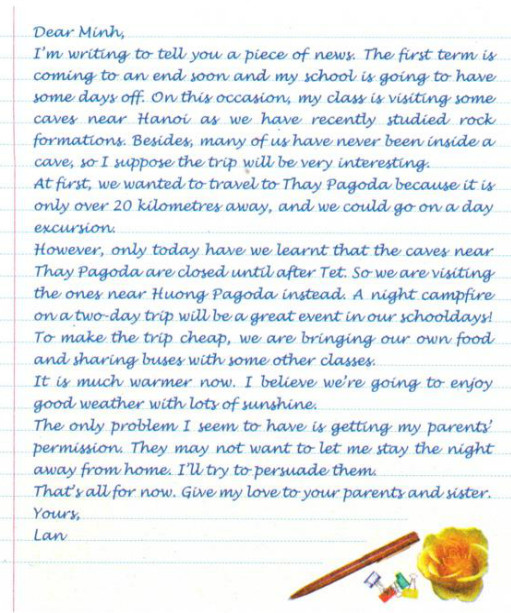 Dear Minh,
I'm writing to tell you a piece of news. The first term is
coming to an end soon and my school is going to have
some days off. On this occasion, my class is visiting some
caves near Hanoi as we have recently studied rock
formations. Besides, many of us have never been inside a
cave, so I suppose the trip will be very interesting.
At first, we wanted to travel to Thay Pagoda because it is
only over 20 kilometres away, and we could go on a day
excursion.
However, only today have we learnt that the caves near
Thay Pagoda are closed until after Tet. So we are visiting
the ones near Huong Pagoda instead. A night campfire
on a two-day trip will be a great event in our schooldays!
To make the trip cheap, we are bringing our own food
and sharing buses with some other classes.
It is much warmer now. I believe we're going to enjoy
good weather with lots of sunshine.
The only problem I seem to have is getting my parents'
permission. They may not want to let me stay the night
away from home. I'll try to persuade them.
That's all for now. Give my love to your parents and sister.
Yours,
Lan